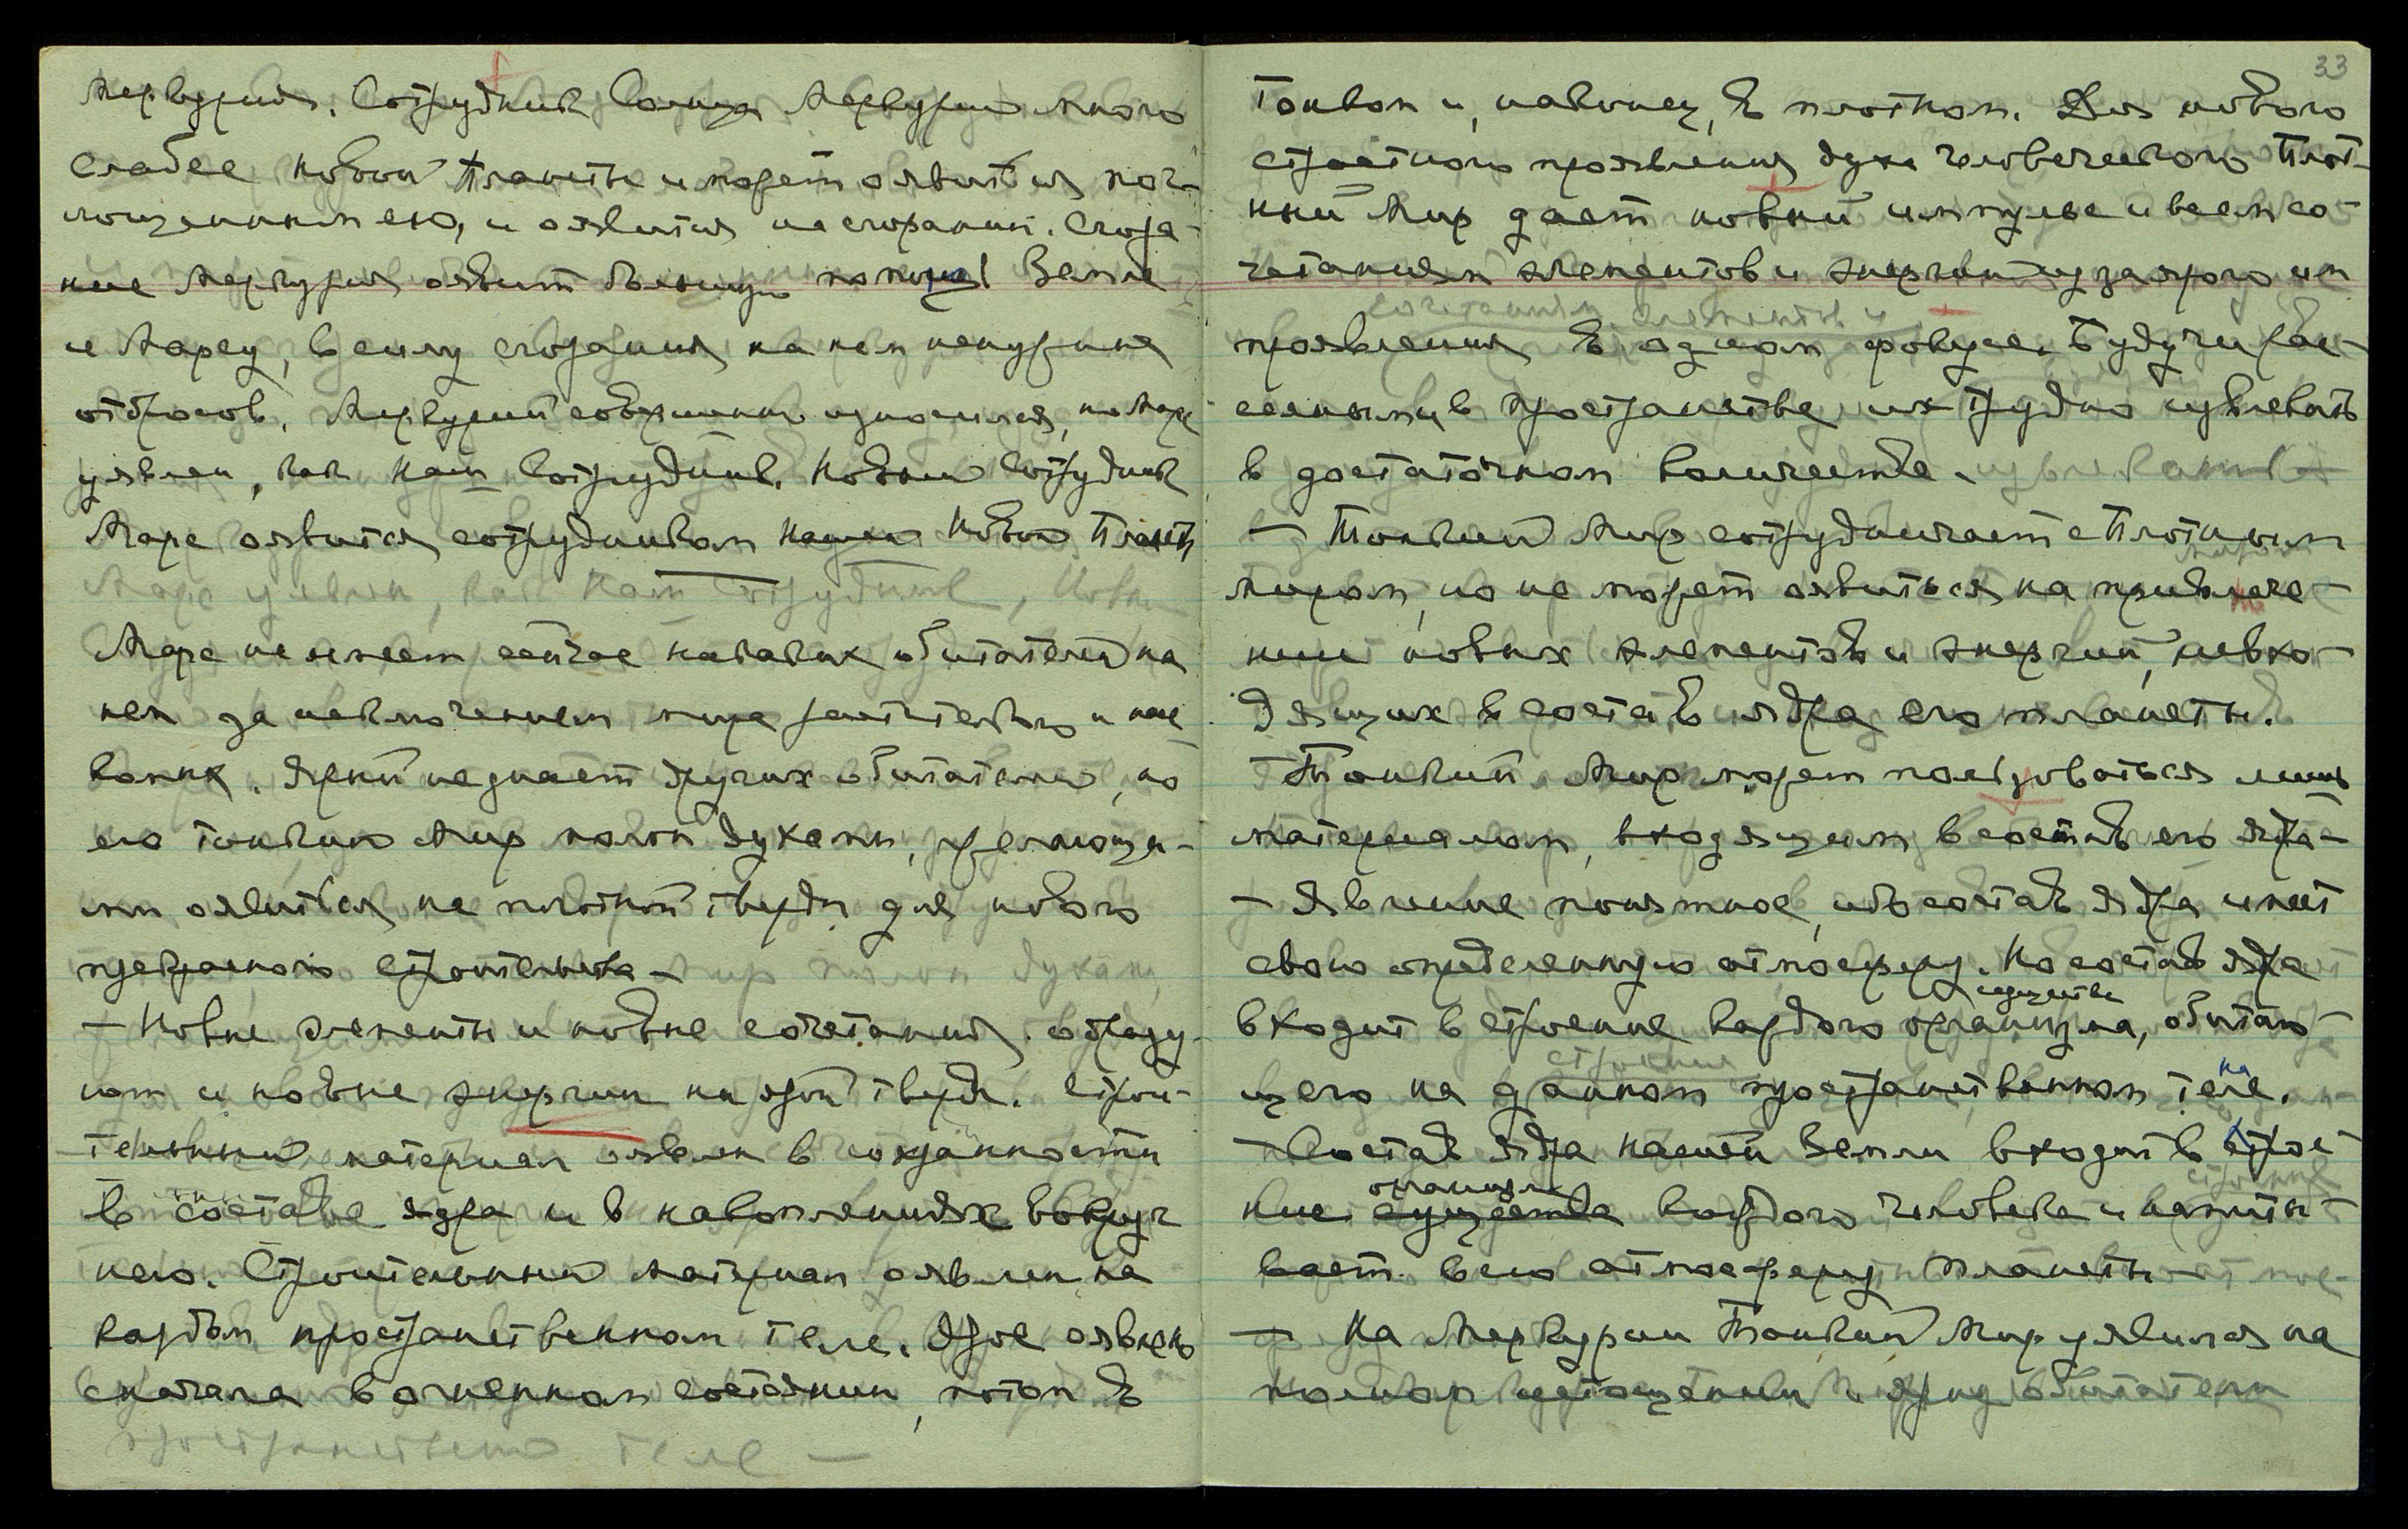 Меркурия. Сотрудник Солнца Меркурий много
слабее Новой Планеты и может оявиться погло-
лощенным ею, и оявится на сгорании. Сгора-
ние Меркурия оявит большую помощь Земле
и Марсу, в силу сгорания на нем ненужных
отбросов. Меркурий совершенно износился, но Марс
уявлен, как Наш Сотрудник. Новый Сотрудник
Марс оявится сотрудником Нашей Новой Планеты
Марс уявлен, как Наш Сотрудник, Новый
Марс не имеет сейчас никаких обитателей на
нем за исключением мира растительного и насе-
комых. Ярый не знает других обитателей, но
его Тонкий Мир полон духами, желающи-
ми оявиться на плотной тверди для нового
прекрасного строительства —
— Новые элементы и новые сочетания образу-
ют и новые энергии на ярой тверди. Строи-
тельный материал оявлен в сохранности
в составе ядра и в накоплениях вокруг
него. Строительный материал оявлен на
каждом пространственном теле. Ярое оявлено
сначала в огненном состоянии, потом в
пространственном теле —
33
тонком и, наконец, в плотном. Для нового
страстного проявления духа человеческого Плот-
ный Мир дает новый импульс и всем со-
четаниям элементов и энергий
сочетаниям элементов и
проявления в одном фокусе. Будучи рас-
сеянными в пространстве их трудно извлекать
в достаточном количестве. извлекать
— Тонкий Мир сотрудничает с Плотным
Миром, но не может оявиться на привлече-
нии новых элементов и энергий, не вхо-
дящих в состав ядра его планеты.
— Тонкий Мир может пользоваться лишь
материалом, входящим в состав его ядра —
— Явление понятное, ибо состав ядра имеет
свою определенную атмосферу. Но состав ядра
существа
входит в строение каждого организма, обитаю-
строение
щего на данном пространственном теле.
— Состав ядра нашей Земли входит в строе-
организма
ние существа каждого человека и напиты-
вает всю атмосферу планеты —
— На Меркурии Тонкий Мир уявился на
полном истощении и яры обитатели